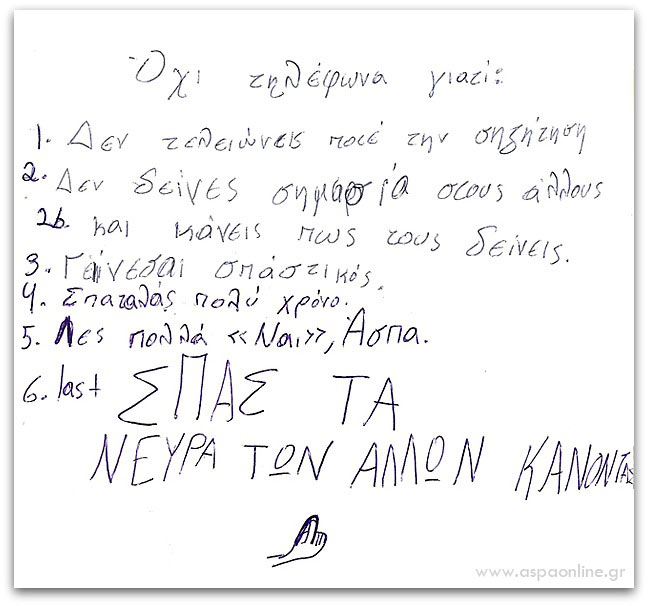 Όχι τηλέφωνα γιατί:
1. Δεν τελειώνεις ποτέ την σηζήτηση
2. Δεν δείνες σημασία στους άλλους
2b. και κάνεις πως τους δείνεις.
3. Γείνεσαι σπάστικός.
4. Σπαταλάς πολύ χρόνο.
5. Λες πολλά «Ναι», Άσπα.
6. last ΣΠΑΣ ΤΑ
ΝΕΥΡΑ ΤΩΝ ΑΛΛΩΝ ΚΑΝΟΝΤΑΣ
www.aspaonline.gr